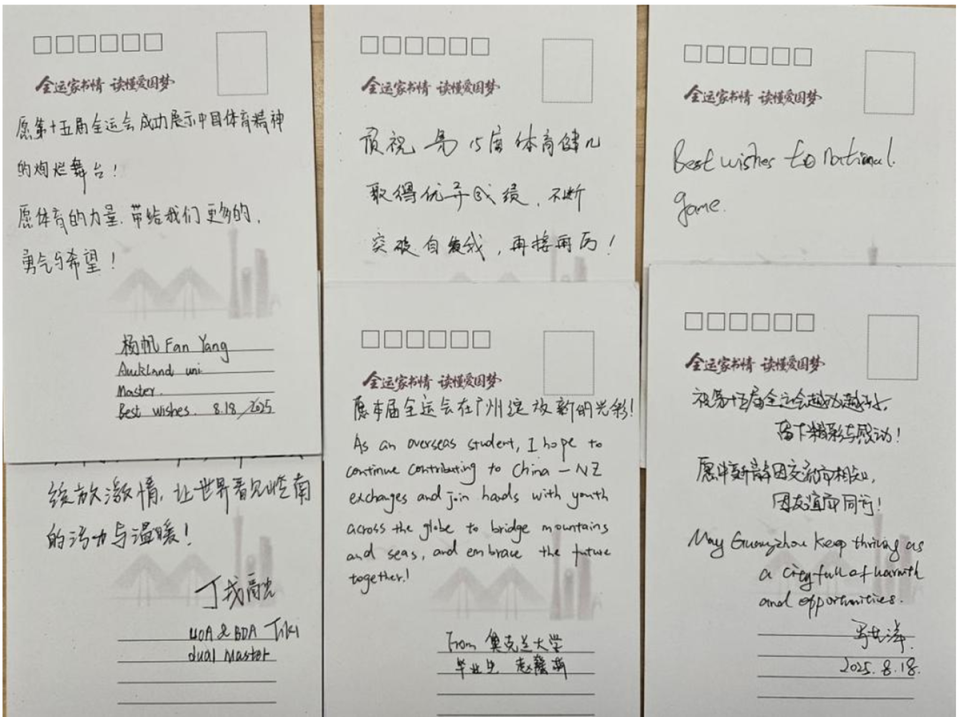 全运家书情 读懂爱国梦
愿第十五届全运会成功展示中国体育精神
的绚烂舞台！
愿体育的力量,带给我们更多的,
勇气与希望！
杨帆 Fan Yang
Auckland uni
Master.
Best wishes. 8.18/2025
全运家书情 读懂爱国梦
预祝 第15届 体育健儿
取得优异成绩，不断
突破自我，再接再厉！
全运家书情 读懂爱国梦
Best wishes to national
game.
绽放激情，让世界看见岭南
的活力与温暖！
UOA & BDA Tiki
dual Master
全运家书情 读懂爱国梦
愿本届全运会在广州绽放新的光彩！
As an overseas student, I hope to
continue contributing to China - NZ
exchanges and join hands with youth
across the globe to bridge mountains
and seas, and embrace the future
together!
From 奥克兰大学
毕业生
全运家书情 读懂爱国梦
祝第十五届全运会越办越好,
留下精彩与感动！
愿中新因交流而相知,
因友谊而同行！
May Guangzhou keep thriving as
a city full of warmth
and opportunities.
2025.8.18.